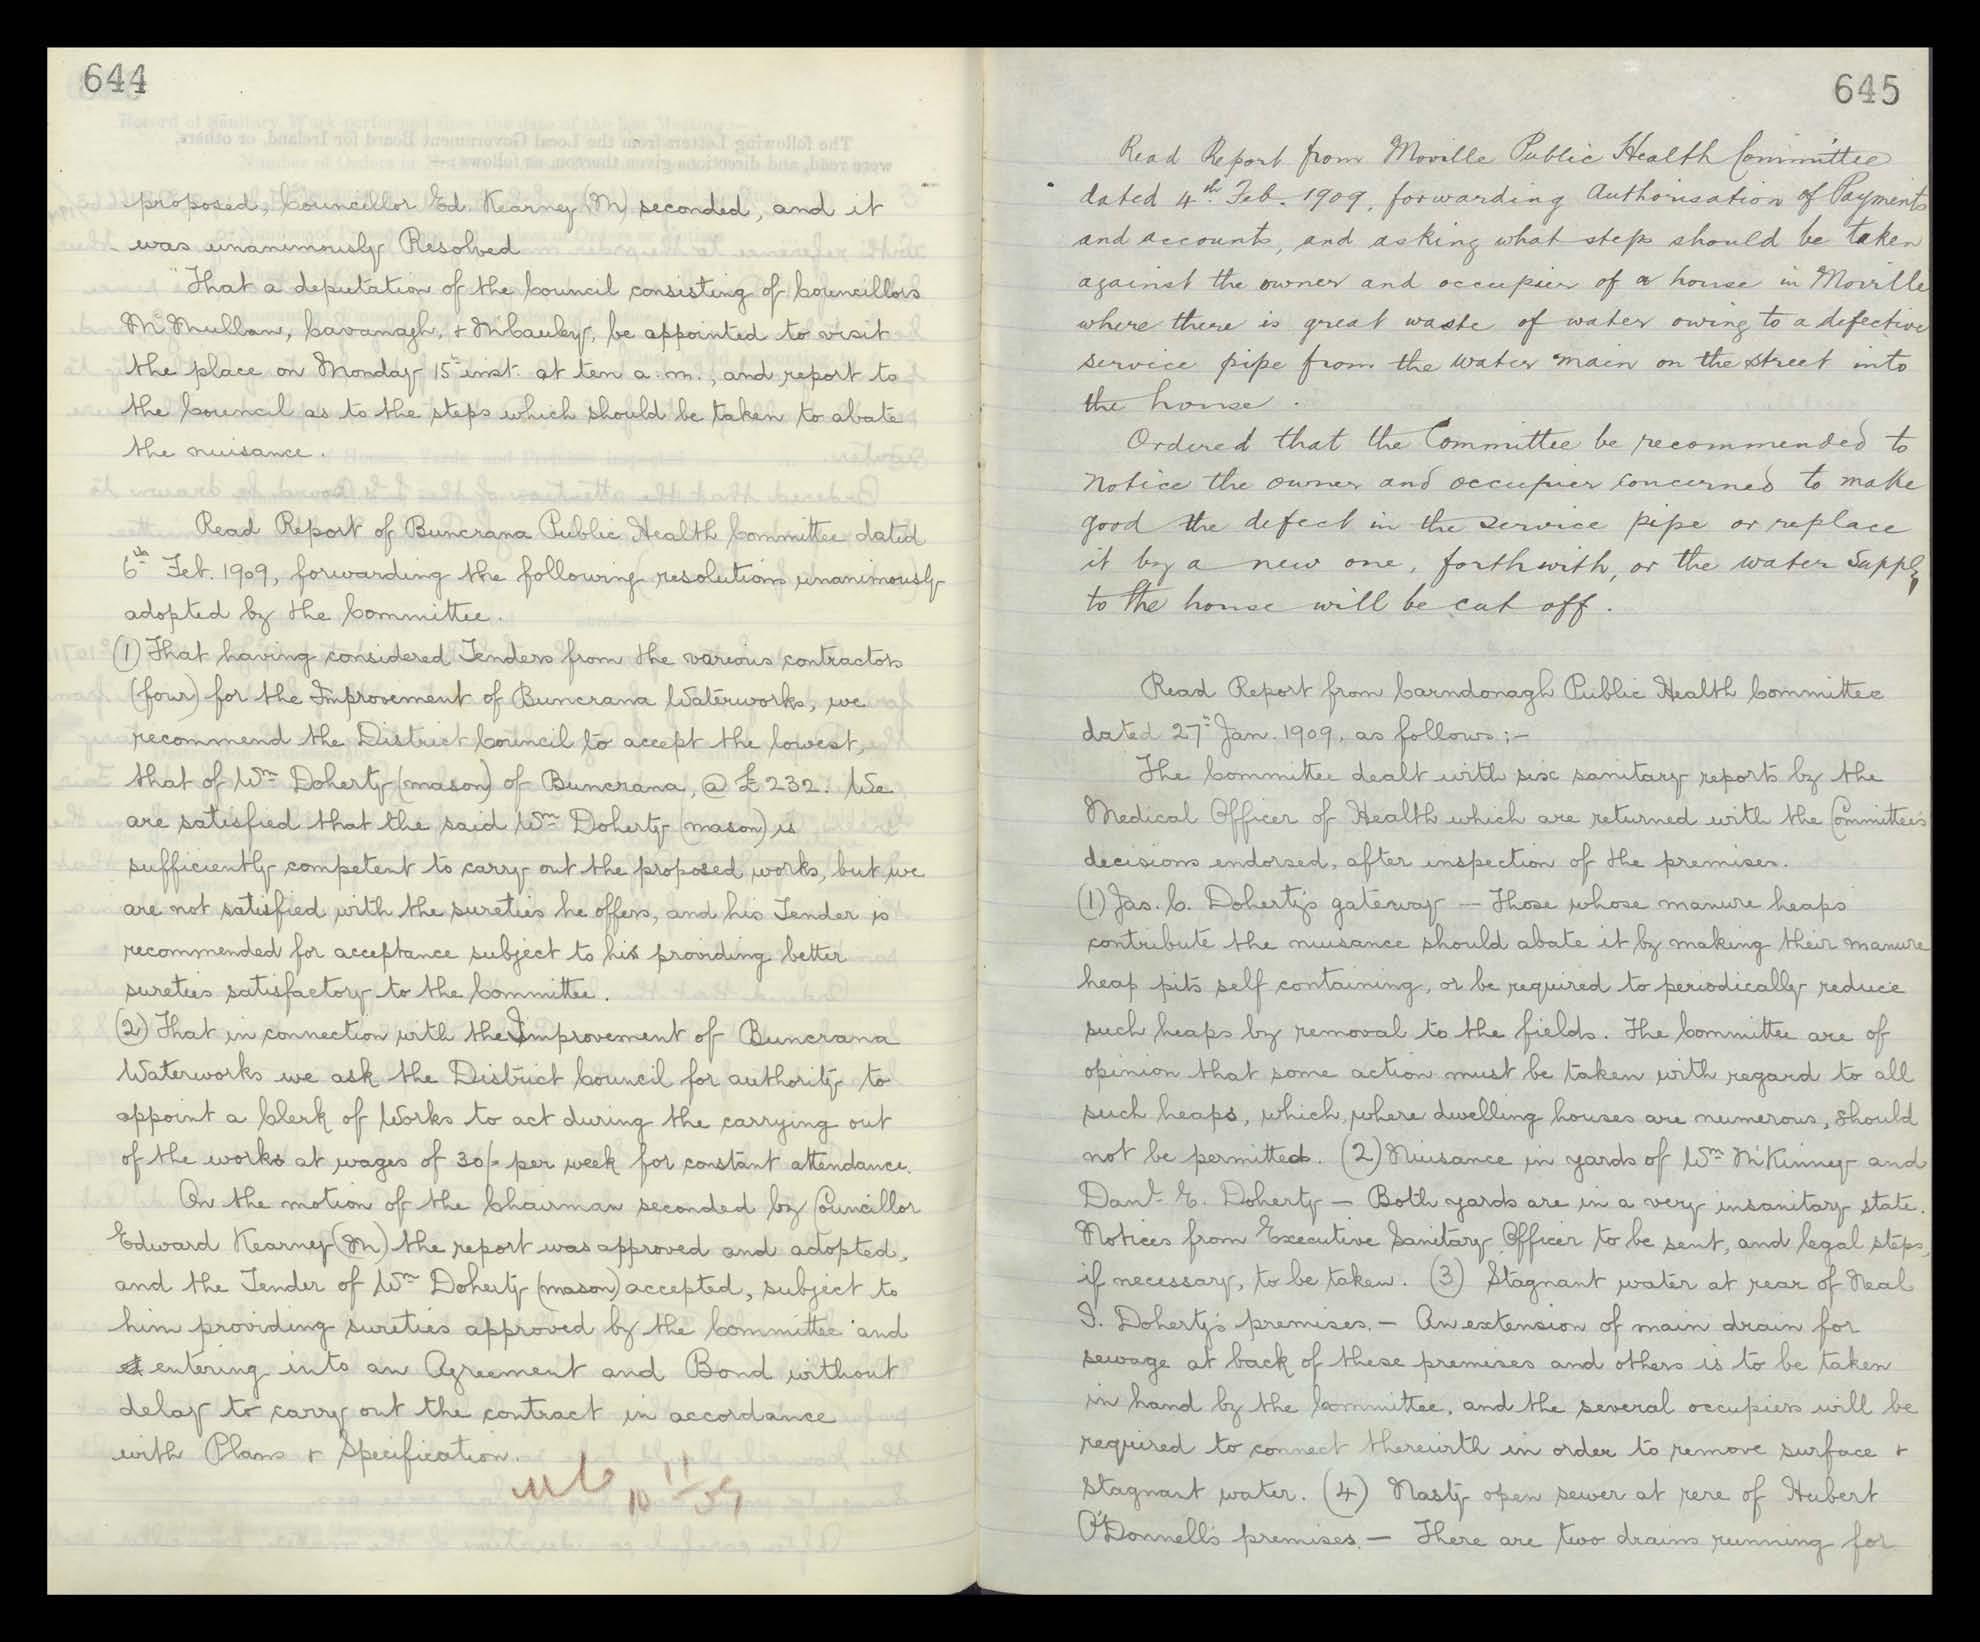 644
proposed, Councillor Ed. Kearney (M) seconded, and it
was unanimously Resolved
"That a deputation of the Council consisting of Councillors
McMullan, Cavanagh, & McCauley, be appointed to visit
the place on Monday 15th inst. at ten a.m., and report to
the Council as to the steps which should be taken to abate
the nuisance.
Read Report of Buncrana Public Health Committee dated
6th Feb. 1909, forwarding the following resolutions unanimously
adopted by the Committee.
(1) That having considered Tenders from the various contractors
(four) for the Improvement of Buncrana Waterworks, we
recommend the District Council to accept the lowest,
that of Wm Doherty (mason) of Buncrana, @ £232. We
are satisfied that the said Wm Doherty (mason) is
sufficiently competent to carry out the proposed works, but we
are not satisfied with the sureties he offers, and his Tender is
recommended for acceptance subject to his providing better
sureties satisfactory to the Committee.
(2) That in connection with the Improvement of Buncrana
Waterworks we ask the District Council for authority to
appoint a Clerk of Works to act during the carrying out
of the works at wages of 30/= per week for constant attendance.
On the motion of the Chairman seconded by Councillor
Edward Kearney (M) the report was approved and adopted,
and the Tender of Wm Doherty (mason) accepted, subject to
him providing sureties approved by the Committee and
entering into an Agreement and Bond without
delay to carry out the contract in accordance
with Plans & Specification.
645
Read Report from Moville Public Health Committee
dated 4th Feb. 1909, forwarding Authorisation of Payments
and accounts, and asking what steps should be taken
against the owner and occupier of a house in Moville
where there is great waste of water owing to a defective
service pipe from the water main on the street into
the house.
Ordered that the Committee be recommended to
notice the owner and occupier concerned to make
good the defect in the service pipe or replace
it by a new one, forthwith, or the water supply
to the house will be cut off.
Read Report from Carndonagh Public Health Committee
dated 27th Jan. 1909, as follows:-
The Committee dealt with six sanitary reports by the
Medical Officer of Health which are returned with the Committee's
decisions endorsed, after inspection of the premises.
(1) Jas. C. Doherty's gateway — Those whose manure heaps
contribute the nuisance should abate it by making their manure
heap pits self containing, or be required to periodically reduce
such heaps by removal to the fields. The Committee are of
opinion that some action must be taken with regard to all
such heaps, which, where dwelling houses are numerous, should
not be permitted. (2) Nuisance in yards of Wm McKinney and
Danl. E. Doherty — Both yards are in a very insanitary state.
Notices from Executive Sanitary Officer to be sent, and legal steps,
if necessary, to be taken. (3) Stagnant water at rear of Neal
I. Doherty's premises. — An extension of main drain for
sewage at back of these premises and others is to be taken
in hand by the Committee, and the several occupiers will be
required to connect therewith in order to remove surface &
stagnant water. (4) Nasty open sewer at rere of Hubert
O'Donnell's premises. — There are two drains running for